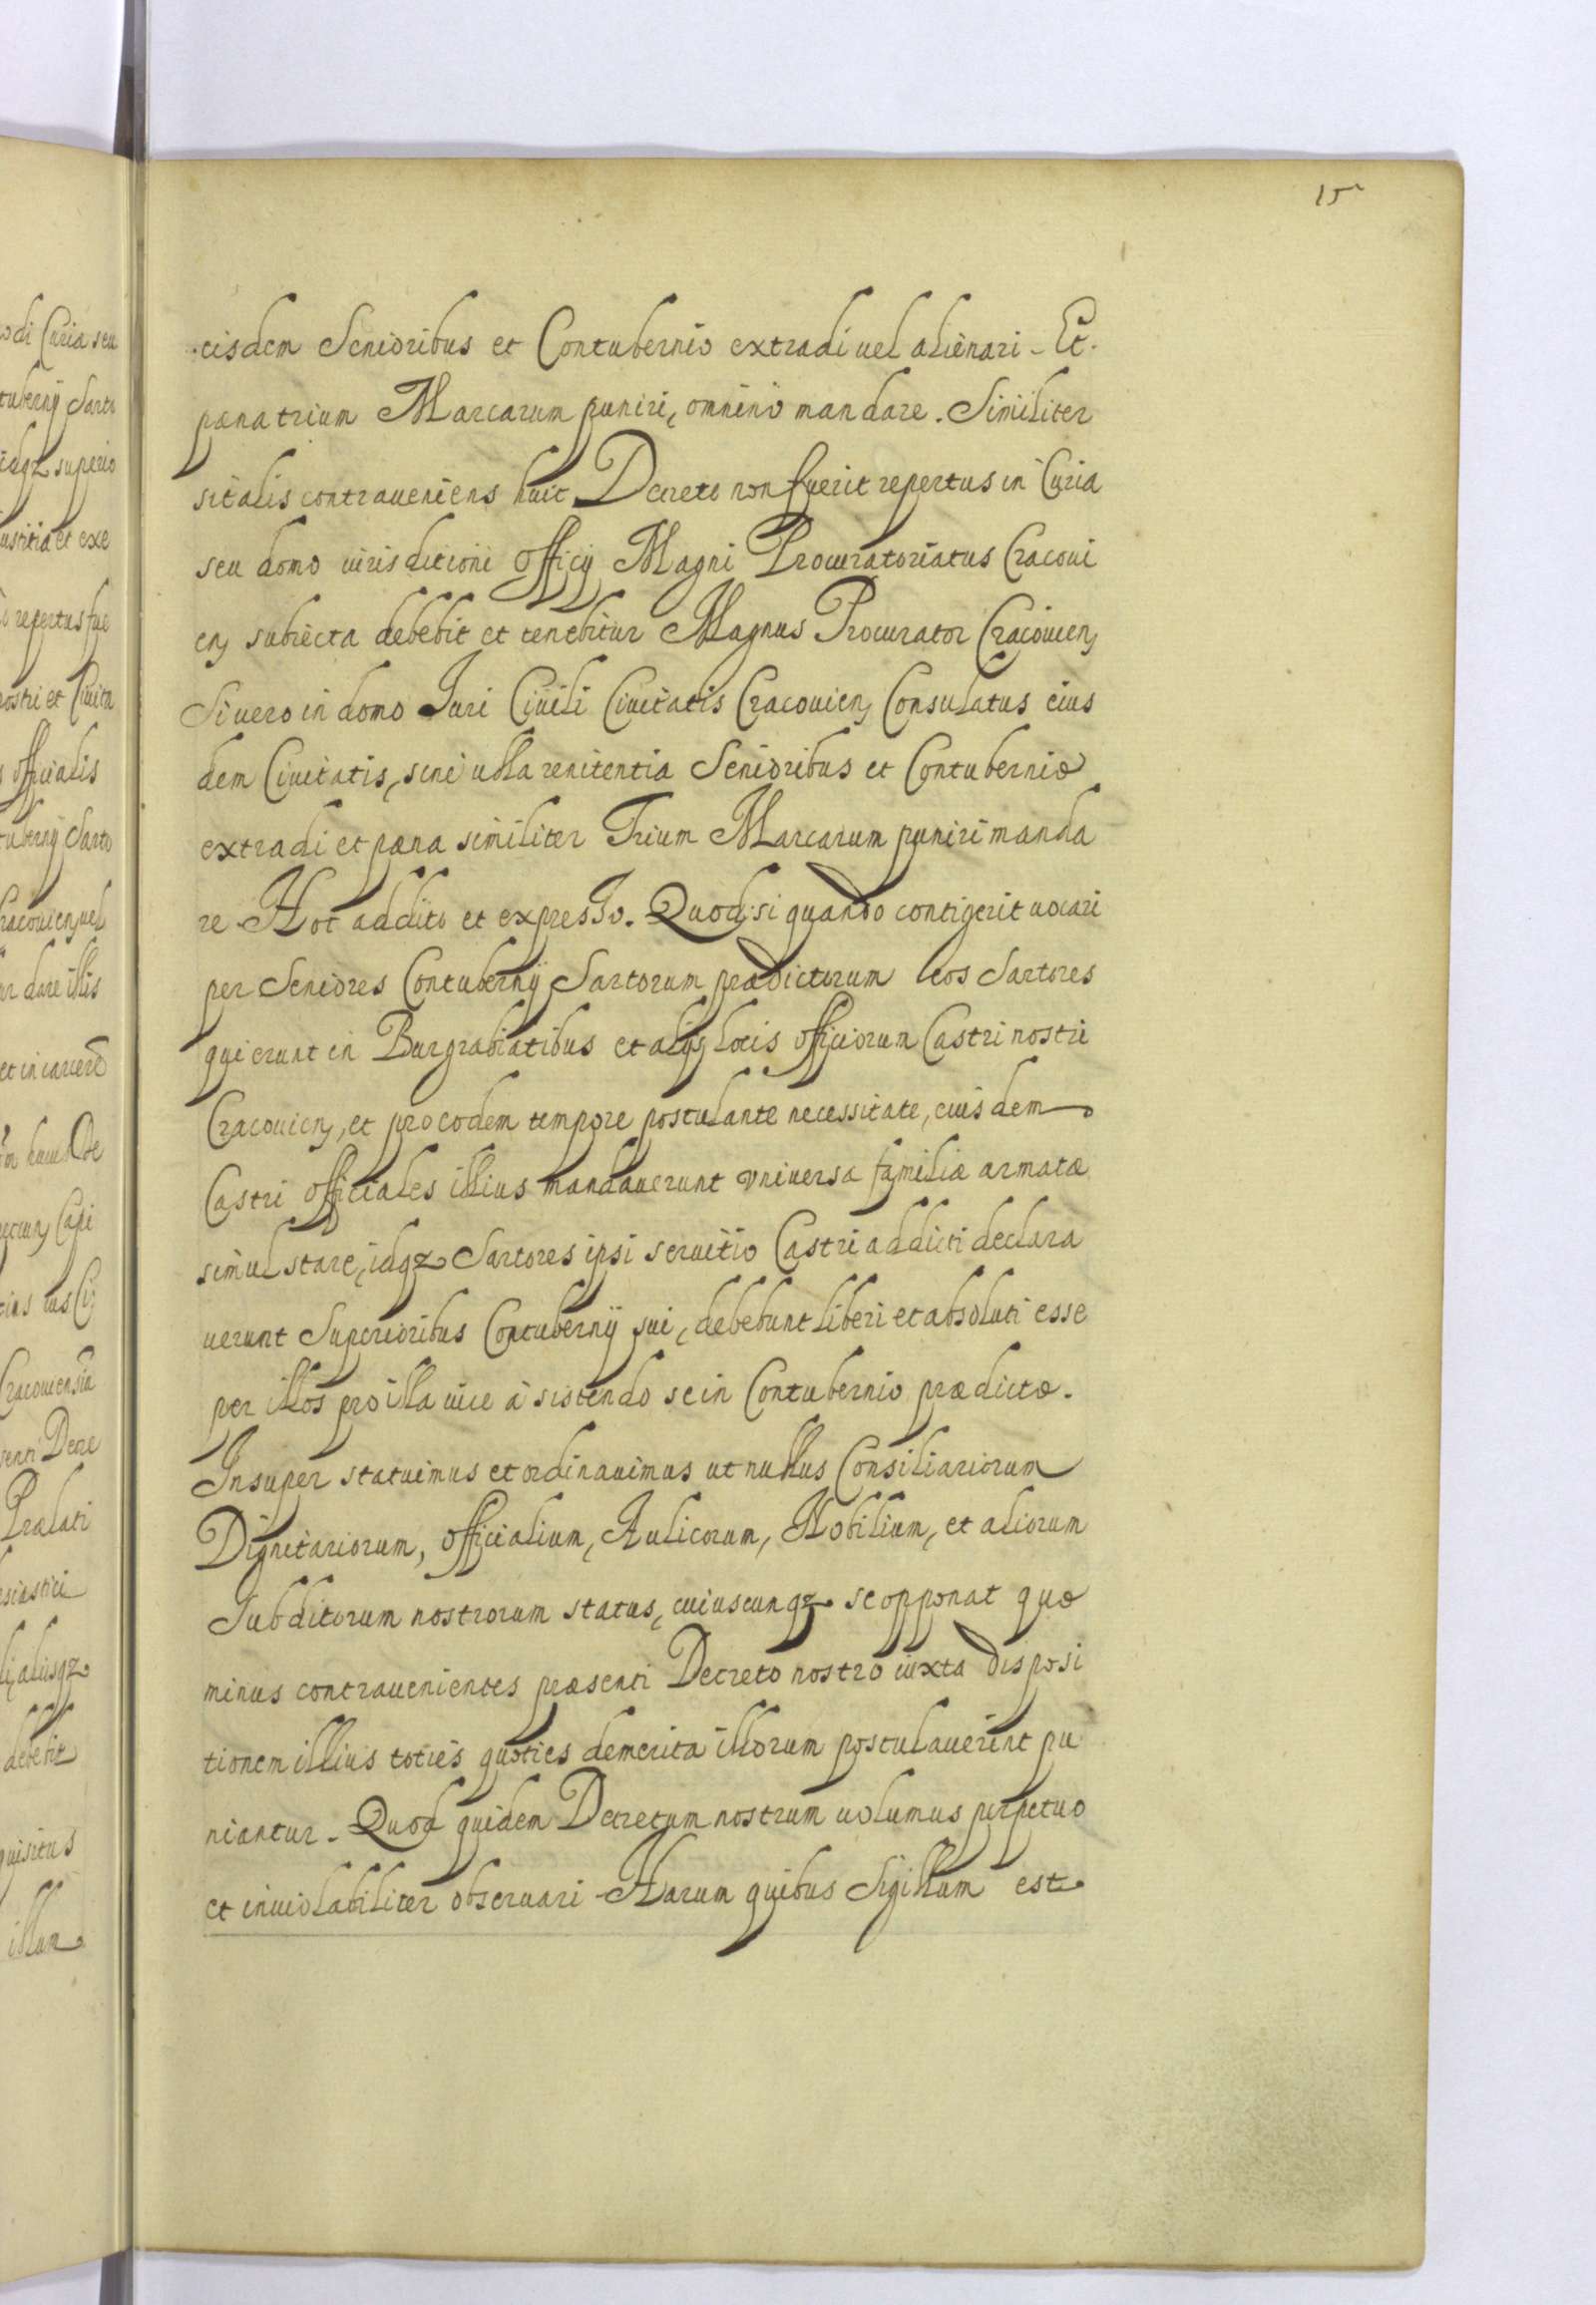 15
eisdem Senioribus et Contubernio extradi uel alienari. Et
pæna trium Marcarum puniri, omnino mandare. Similiter
si talis contraueniens huic Decreto non fuerit repertus in Curia
seu domo iurisditioni Officij Magni Procuratoriatus Cracoui
en, subiecta debebit et tenebitur Magnus Procurator Cracouien,
Si uero in domo Iuri Ciuili Ciuitatis Cracouien, Consulatus eius
dem Ciuitatis, sine ulla renitentia Senioribus et Contubernio
extradi et pæna similiter Trium Marcarum puniri manda
re. Hoc addito et expresso. Quod si quando contigerit uocari
per Seniores Contubernij Sartorum prædictorum eos Sartores
qui erunt in Burgrabiatibus et alijs locis Officiorum Castri nostri
Cracouien, et pro eodem tempore postulante necessitate, eiusdem
Castri Officiales illius mandauerunt vniuersa familiæ armatæ
simul stare, idqz Sartores ipsi seruitio Castri addicti declara
uerunt Superioribus Contubernij sui, debebunt liberi et absoluti esse
per illos pro illa uice à sistendo se in Contubernio prædicto.
Insuper statuimus et ordinauimus ut nullus Consiliariorum
Dignitariorum, Officialium, Aulicorum, Nobilium, et aliorum
Subditorum nostrorum status, cuiuscunqz se opponat quo
minus contrauenientes præsenti Decreto nostro iuxta disposi
tionem illius toties quoties demerita illorum postulauerint pu
niantur. Quod quidem Decretum nostrum uolumus perpetuo
et inuiolabiliter obseruari Harum quibus Sigillum est